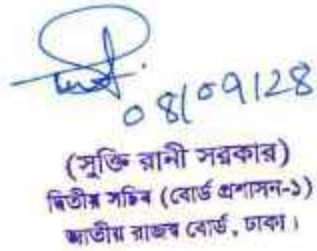 ০৪/০৭/২৪
(সুক্তি রানী সরকার)
দ্বিতীয় সচিব (বোর্ড প্রশাসন-১)
জাতীয় রাজস্ব বোর্ড, ঢাকা।